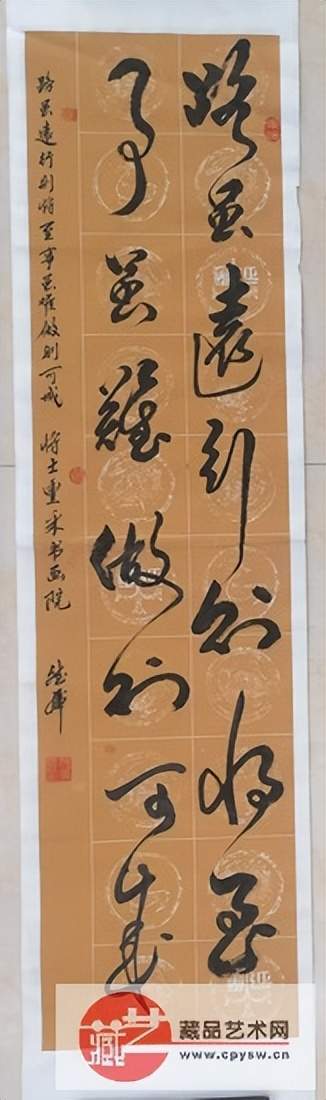 路虽遠行则将至
事虽難做则可成
路虽遠行则将至事虽难做则可成 将士书画院
艺
藏
藏品艺术网
www.cpysw.cn